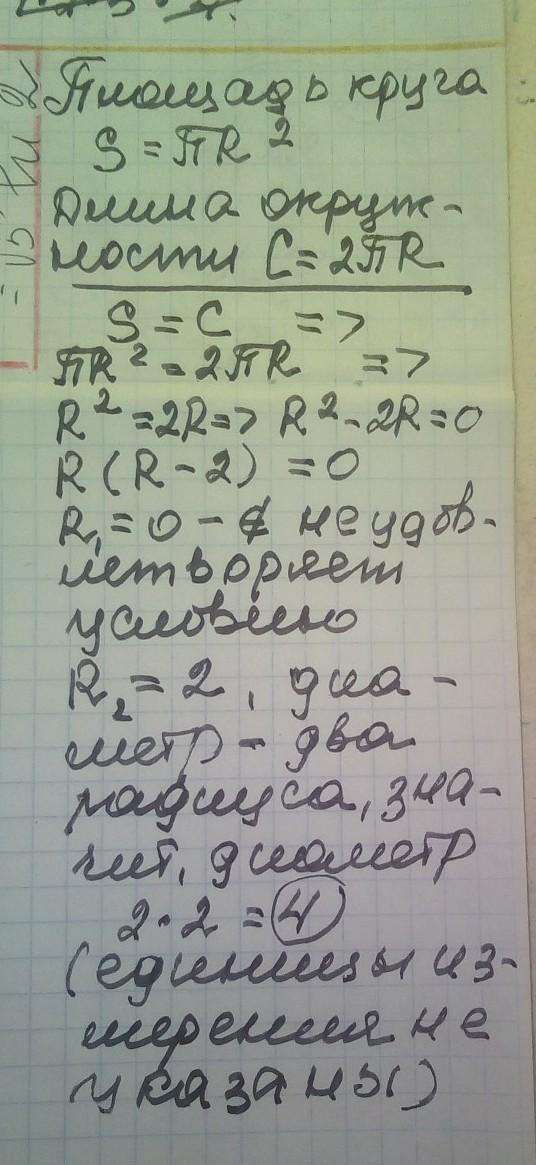 Площадь круга
S = πR²
Длина окруж-
ности C = 2πR
S = C =>
πR² = 2πR =>
R² = 2R => R² - 2R = 0
R (R - 2) = 0
R₁ = 0 - не удов-
летворяет
условию
R₂ = 2, диа-
метр - два
радиуса, зна-
чит, диаметр
2·2 = 4
(единицы из-
мерения не
указаны)